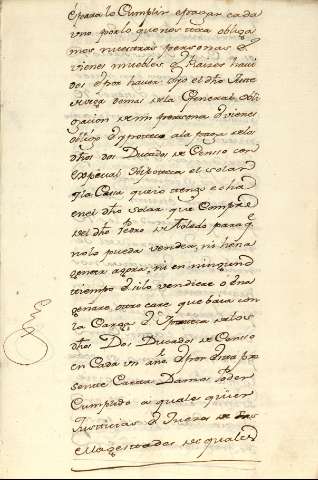 é para lo Cumplir e pagar cada
uno por lo que nos toca obliga
mos nuestras personas e
vienes muebles e Raizes havi
dos e por haver e yo el dho
demas de la General obli
gacion de mi persona e vienes
obligo e ypoteco a la paga de los
dhos dos Ducados de Censso con
expecial ypoteca el solar
y la Casa que io tengo echa
en el dho solar que Compre
del dho Pedro de Toledo para q
no lo pueda vender, ni hena
genar agora, ni en ningund
tiempo e si lo vendiere o ena
genare, otro care que baia con
la Carga e ypoteca de los
dhos Dos Ducados de Censso
en Cada un año e por esta pre
sente Carta Damos poder
Cumplido a quales quier
Justicias e Jueces de sus
Magestades de quales